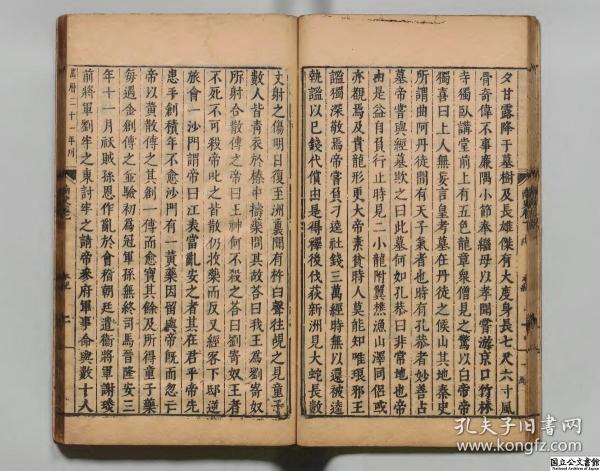 夕甘露降于墓樹及長雄傑有大度身長七尺六寸風
骨奇偉不事廉隅小節奉繼母以孝聞嘗游京口竹林
寺獨臥講堂前上有五色龍章衆僧見之驚以白帝帝
獨喜曰上人無妄言皇考墓在丹徒之候山其地秦史
所謂曲阿丹徒間有天子氣者也時有孔恭者妙善占
墓帝嘗與經墓欺之曰此墓何如孔恭曰非常地也帝
由是益自負行止時見二小龍附翼樵漁山澤同侶或
亦覩焉及貴龍形更大帝素貧時人莫能知唯琅邪王
謐獨深敬焉帝嘗負刁逵社錢三萬經時無以還被逵
執謐以己錢代償由是得釋後伐荻新洲見大蛇長數
丈射之傷明日復至洲裏聞有杵臼聲往覘之見童子
數人皆青衣於榛中擣藥問其故答曰我王爲劉寄奴
所射合散傅之帝曰王神何不殺之答曰劉寄奴王者
不死不可殺帝叱之皆散仍收藥而反又經客下邳逆
旅會一沙門謂帝曰江表當亂安之者其在君乎帝先
患手創積年不愈沙門有一黃藥因留與帝旣而忽亡
帝以黃散傅之其創一傅而愈寶其餘及所得童子藥
每遇金創傅之並驗初爲冠軍孫無終司馬晉隆安三
年十一月祅賊孫恩作亂於會稽朝廷遣衞將軍謝琰
前將軍劉牢之東討牢之請帝參府軍事命與數十人
萬曆三十一年刊
孔夫子旧书网
kongfz.com
国立公文書館
National Archives of Japan